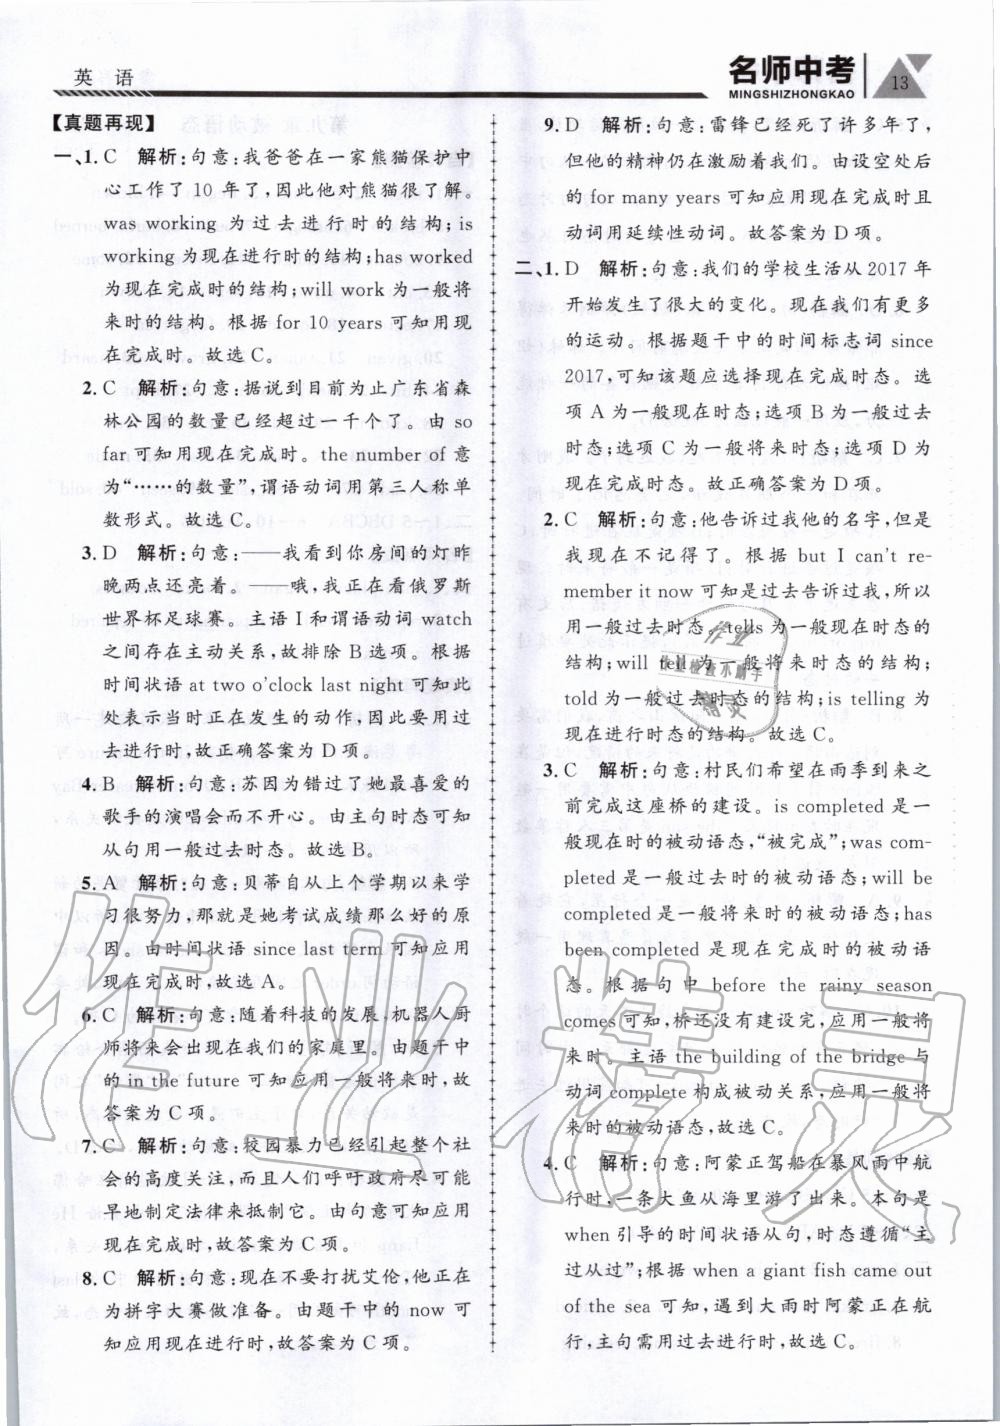 英 语
名师中考
MINGSHIZHONGKAO
13
【真题再现】
一、1. C 解析:句意:我爸爸在一家熊猫保护中
心工作了 10 年了,因此他对熊猫很了解。
was working 为过去进行时的结构;is
working为现在进行时的结构;has worked
为现在完成时的结构;will work为一般将
来时的结构。根据for 10 years可知用现
在完成时。故选C。
2. C 解析:句意:据说到目前为止广东省森
林公园的数量已经超过一千个了。由 so
far可知用现在完成时。the number of 意
为“……的数量”,谓语动词用第三人称单
数形式。故选C。
3. D 解析:句意:——我看到你房间的灯昨
晚两点还亮着。——哦,我正在看俄罗斯
世界杯足球赛。主语I和谓语动词watch
之间存在主动关系,故排除B选项。根据
时间状语at two o'clock last night可知此
处表示当时正在发生的动作,因此要用过
去进行时,故正确答案为D项。
4. B 解析:句意:苏因为错过了她最喜爱的
歌手的演唱会而不开心。由主句时态可知
从句用一般过去时态。故选B。
5. A 解析:句意:贝蒂自从上个学期以来学
习很努力,那就是她考试成绩那么好的原
因。由时间状语since last term可知应用
现在完成时,故选A。
6. C 解析:句意:随着科技的发展,机器人厨
师将来会出现在我们的家庭里。由题干中
的in the future 可知应用一般将来时,故
答案为C项。
7. C 解析:句意:校园暴力已经引起整个社
会的高度关注,而且人们呼吁政府尽可能
早地制定法律来抵制它。由句意可知应用
现在完成时,故答案为C项。
8. C 解析:句意:现在不要打扰艾伦,他正在
为拼字大赛做准备。由题干中的now可
知应用现在进行时,故答案为C项。
9. D 解析:句意:雷锋已经死了许多年了,
但他的精神仍在激励着我们。由设空处后
的for many years可知应用现在完成时且
动词用延续性动词。故答案为D项。
二、1. D 解析:句意:我们的学校生活从2017年
开始发生了很大的变化。现在我们有更多
的运动。根据题干中的时间标志词since
2017,可知该题应选择现在完成时态。选
项A为一般现在时态;选项B为一般过去
时态;选项C为一般将来时态;选项D为
现在完成时态。故正确答案为D项。
2. C 解析:句意:他告诉过我他的名字,但是
我现在不记得了。根据 but I can't re-
member it now可知是过去告诉过我,所以
用一般过去时态。tells为一般现在时态的
结构;will tell为一般将来时态的结构;
told为一般过去时态的结构;is telling为
现在进行时态的结构。故选C。
3. C 解析:句意:村民们希望在雨季到来之
前完成这座桥的建设。is completed是一
般现在时的被动语态,“被完成”;was com-
pleted是一般过去时的被动语态;will be
completed是一般将来时的被动语态;has
been completed是现在完成时的被动语
态。根据句中 before the rainy season
comes可知,桥还没有建设完,应用一般将
来时。主语the building of the bridge与
动词complete构成被动关系,应用一般将
来时的被动语态,故选C。
4. C 解析:句意:阿蒙正驾船在暴风雨中航
行时,一条大鱼从海里游了出来。本句是
when引导的时间状语从句,时态遵循“主
过从过”;根据 when a giant fish came out
of the sea可知,遇到大雨时阿蒙正在航
行,主句需用过去进行时,故选C。
作业精灵